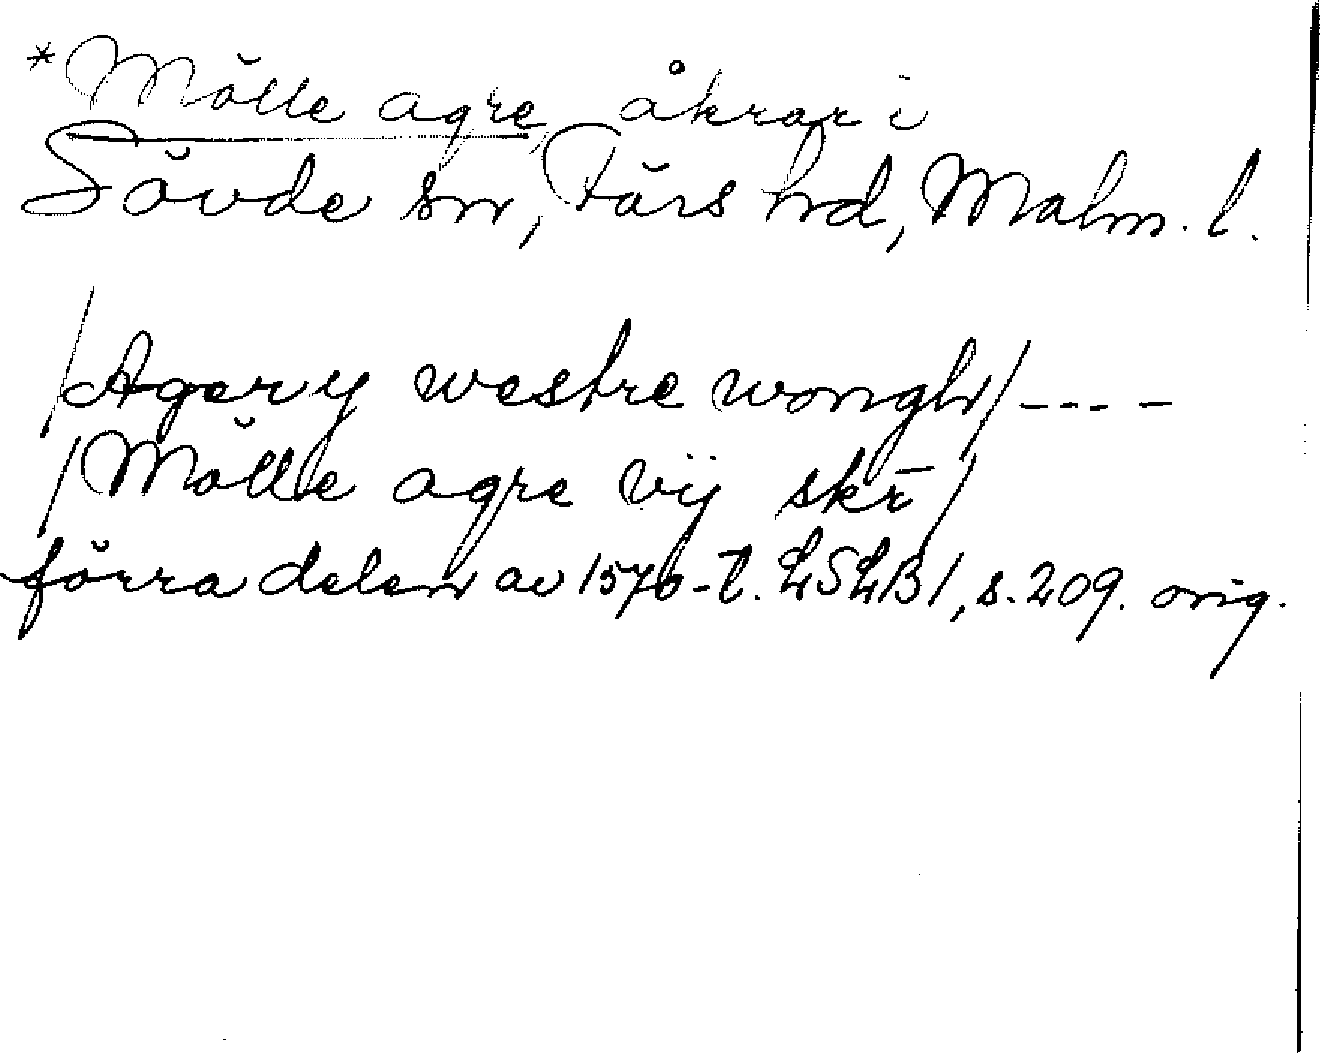 *Mölle agre, åkrar i
Sövde sn, Färs hd, Malm. l.
/Ager y westre wongh/ ----
/Mölle agre vij skr/
förra delen av 1570-t. LSLB 1, s. 209. orig.